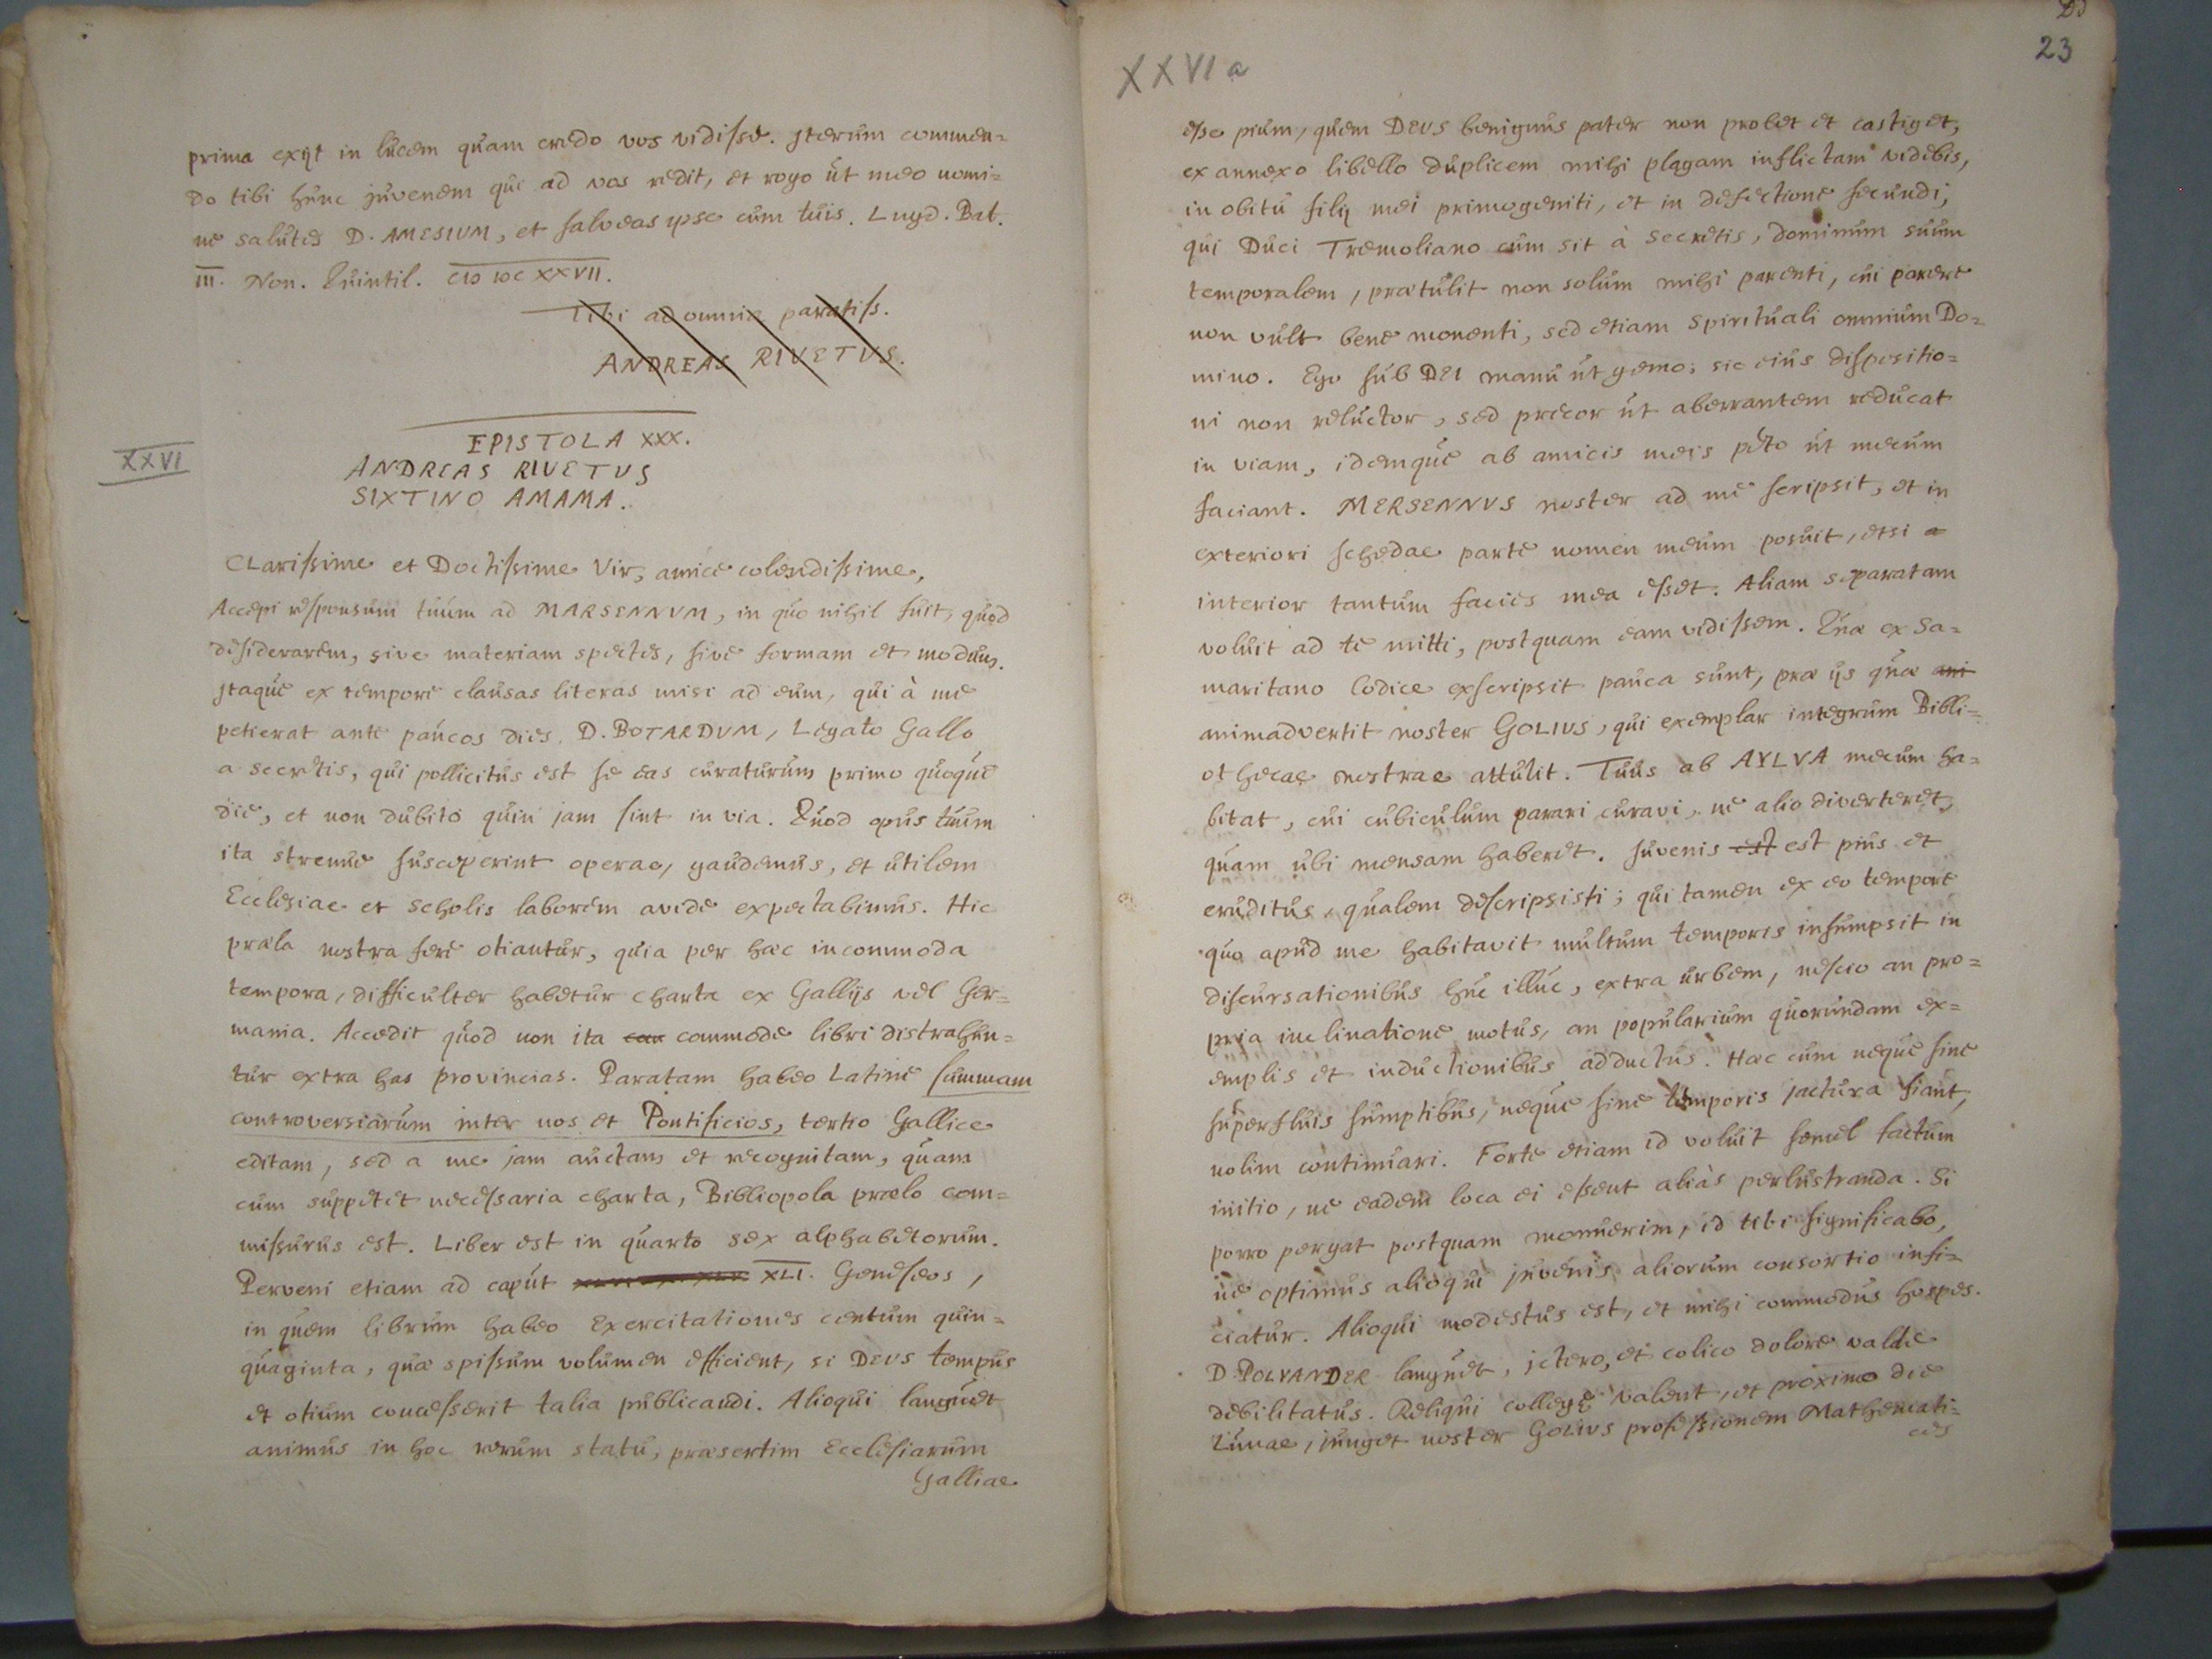 prima exijt in lucem quam credo vos vidisse. Iterum commen=
do tibi hunc juvenem qui ad vos redit, et rogo ut meo nomi=
ne salutes D. AMESIUM, et salveas ipse cum tuis. Lugd. Bat.
III. Non. Quintil. CIƆ IƆC XXVII.
Tibi ad omnia paratiss.
ANDREAS RIVETUS.
XXVI
EPISTOLA XXX.
ANDREAS RIVETUS
SIXTINO AMAMA.
Clarissime et Doctissime Vir, amice colendissime,
Accepi responsum tuum ad MARSENNUM, in quo nihil fuit, quod
desiderarem, sive materiam spectes, sive formam et modum.
Itaque ex tempore clausas literas misi ad eum, qui à me
petierat ante paucos dies. D. BOTARDUM, Legato Gallo
a secretis, qui pollicitus est se eas curaturum primo quoque
die, et non dubito quin jam sint in via. Quod opus tuum
ita strenue susceperint operae, gaudemus, et utilem
Ecclesiae et scholis laborem avide expectabimus. Hic
praela nostra fere otiantur, quia per haec incommoda
tempora, difficulter habetur charta ex Gallijs vel Ger=
mania. Accedit quod non ita com commode libri distrahun=
tur extra has provincias. Paratam habeo Latine summam
controversiarum inter nos et Pontificios, tertio Gallice
editam, sed a me jam auctam et recognitam, quam
cum suppetet necessaria charta, Bibliopola praelo com=
missurus est. Liber est in quarto sex alphabetorum.
Perveni etiam ad caput XLI. Geneseos,
in quem librum habeo Exercitationes centum quin=
quaginta, quae spissum volumen efficient, si DEUS tempus
et otium concesserit talia publicandi. Alioqui languet
animus in hoc rerum statu, praesertim Ecclesiarum
Galliae
XXVI a
23
esse pium, quem DEUS benignus pater non probet et castiget,
ex annexo libello duplicem mihi plagam inflictam videbis,
in obitu filij mei primogeniti, et in defectione secundi,
qui Duci Tremoliano cum sit à secretis, dominum suum
temporalem, praetulit non solum mihi parenti, cui parere
non vult bene monenti, sed etiam spirituali omnium Do=
mino. Ego sub DEI manu ut gemo; sic eius dispositio=
ni non reluctor, sed precor ut aberrantem reducat
in viam, idemque ab amicis meis peto ut mecum
faciant. MERSENNUS noster ad me scripsit, et in
exteriori schedae parte nomen meum posuit, etsi a
interior tantum facies mea esset. Aliam separatam
voluit ad te mitti, postquam eam vidissem. Quae ex Sa=
maritano Codice exscripsit pauca sunt, prae ijs quae ani
animadvertit noster GOLIUS, qui exemplar integrum Bibli=
othecae nostrae attulit. Tuus ab AYLVA mecum ha=
bitat, cui cubiculum parari curavi, ne alio diverteret,
quam ubi mensam haberet. Juvenis est est pius et
eruditus, qualem descripsisti; qui tamen ex eo tempore
quo apud me habitavit multum temporis insumpsit in
discursationibus huc illuc, extra urbem, nescio an pro=
pria inclinatione motus, an popularium quorundam ex=
emplis et inductionibus adductus. Haec cum neque sine
superfluis sumptibus, neque sine temporis jactura fiant,
nolim continuari. Forte etiam id voluit semel factum
initio, ne eadem loca ei essent aliàs perlustranda. Si
porro pergat postquam monuerim, id tibi significabo,
ne optimus alioqui juvenis aliorum consortio infi=
ciatur. Alioqui modestus est, et mihi commodus hospes.
D. POLYANDER languet, ictero, et colico dolore valde
debilitatus. Reliqui collegę valent, et proximo die
Lunae, junget noster GOLIUS professionem Mathemati=
ces